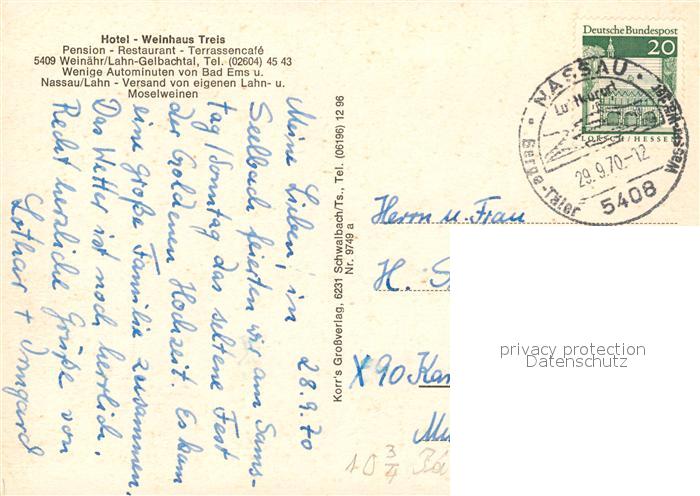 Hotel - Weinhaus Treis
Pension - Restaurant - Terrassencafé
5409 Weinähr/Lahn-Gelbachtal, Tel. (02604) 45 43
Wenige Autominuten von Bad Ems u.
Nassau/Lahn - Versand von eigenen Lahn- u.
Moselweinen
28.9.70
Meine Lieben, in
Seelbach feierten wir am Sams-
tag/Sonntag das seltene Fest
der Goldenen Hochzeit. Es kam
eine große Familie zusammen,
Das Wetter ist noch herrlich.
Recht herzliche Grüße von
Lothar + Irmgard
Korr's Großverlag, 6231 Schwalbach/Ts., Tel. (06196) 12 96
Nr. 9749 a
Deutsche Bundespost
20
LORSCH/HESSEN
NASSAU
Luftkurort
Berge-Täler
29.9.70-12
5408
Herrn u. Frau
H. S
X90 Kar
privacy protection
Datenschutz
10 3/4